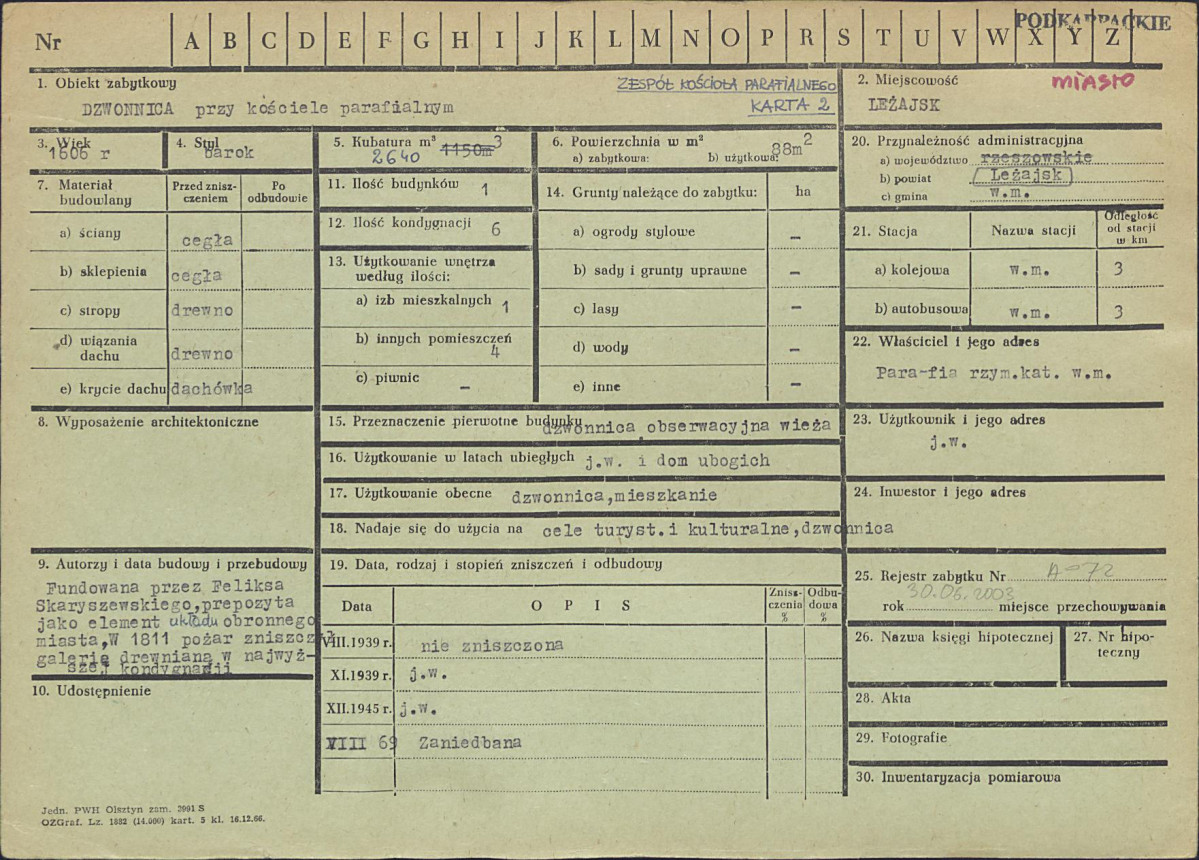 PODKARPACKIE
Nr A B C D E F G H I J K L M N O P R S T U V W X Y Z
1. Obiekt zabytkowy
ZESPÓŁ KOŚCIOŁA PARAFIALNEGO
KARTA 2
DZWONNICA przy kościele parafialnym
2. Miejscowość
MIASTO
LEŻAJSK
3. Wiek
1606 r
4. Styl
barok
5. Kubatura m³ 1150m3
2640
6. Powierzchnia w m²
a) zabytkowa: b) użytkowa:
88m2
7. Materiał budowlany
Przed zniszczeniem
Po odbudowie
a) ściany cegła
b) sklepienia cegła
c) stropy drewno
d) wiązania dachu drewno
e) krycie dachu dachówka
8. Wyposażenie architektoniczne
9. Autorzy i data budowy i przebudowy
Fundowana przez Feliksa
Skaryszewskiego,prepozyta
jako element układu obronnego
miasta,W 1811 pożar zniszczył
galerię drewnianą w najwyż-
szej kondygnacji
10. Udostępnienie
11. Ilość budynków 1
12. Ilość kondygnacji 6
13. Użytkowanie wnętrza
według ilości:
a) izb mieszkalnych 1
b) innych pomieszczeń
4
c) piwnic –
14. Grunty należące do zabytku: ha
a) ogrody stylowe –
b) sady i grunty uprawne –
c) lasy –
d) wody –
e) inne –
15. Przeznaczenie pierwotne budynku dzwonnica obserwacyjna wieża
16. Użytkowanie w latach ubiegłych j.w. i dom ubogich
17. Użytkowanie obecne dzwonnica,mieszkanie
18. Nadaje się do użycia na cele turyst.i kulturalne,dzwonnica
19. Data, rodzaj i stopień zniszczeń i odbudowy
Data
O P I S
Zniszczenia %
Odbudowa %
VIII.1939 r. nie zniszczona
XI.1939 r. j.w.
XII.1945 r. j.w.
VIII 69 Zaniedbana
20. Przynależność administracyjna
a) województwo rzeszowskie
b) powiat Leżajsk
c) gmina w.m.
21. Stacja
Nazwa stacji
Odległość
od stacji
w km
a) kolejowa w.m. 3
b) autobusowa w.m. 3
22. Właściciel i jego adres
Para-fia rzym.kat. w.m.
23. Użytkownik i jego adres
j.w.
24. Inwestor i jego adres
25. Rejestr zabytku Nr A-72
30.06.2003
rok miejsce przechowywania
26. Nazwa księgi hipotecznej
27. Nr hipoteczny
28. Akta
29. Fotografie
30. Inwentaryzacja pomiarowa
Jedn. PWH Olsztyn zam. 2991 S
OZGraf. Lz. 1882 (14.000) kart. 5 kl. 16.12.66.